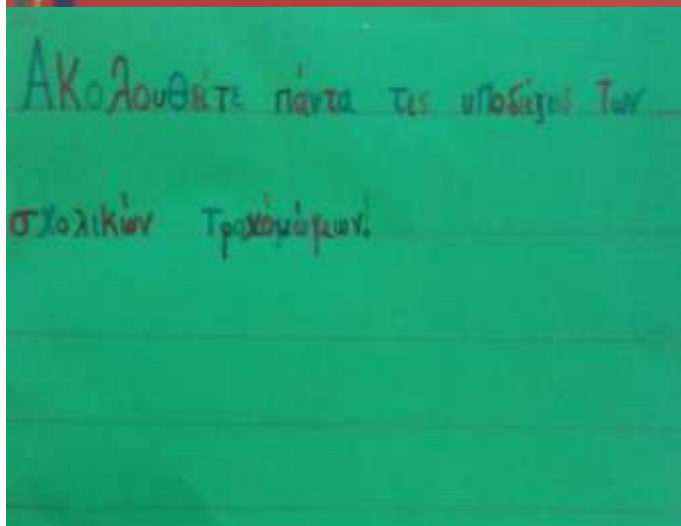 Ακολουθείτε πάντα τες υποδείξες των
σχολικών τροχόμόμων.